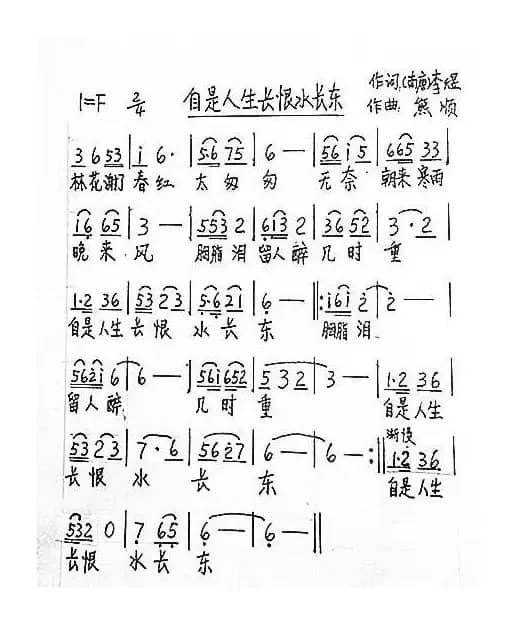 自是人生长恨水长东
作词(南唐)李煜
1=F 2/4
作曲 熊顺
3 6 53 | i 6· | 5·6 75 | 6 — | 56 i 5 | 665 33 |
林花谢了 春红 太匆匆 无奈 朝来寒雨
i6 65 | 3 — | 553 2 | 613 2 | 36 52 | 3·2 |
晚来 风 胭脂泪 留人醉 几时 重
1·2 36 | 53 23 | 5·6 21 | 6 — ‖: i6i 2 | 2 — |
自是人生长恨 水长 东 胭脂泪
562i 6 | 6 — | 56i 652 | 5 3 2 | 3 — | 1·2 36 |
留人醉 几时重 自是人生
渐慢
53 23 | 7·6 | 56 27 | 6 — | 6 — :‖ 1·2 36 |
长恨 水 长 东 自是人生
532 0 | 7 65 | 6 — | 6 — ‖
长恨 水长 东